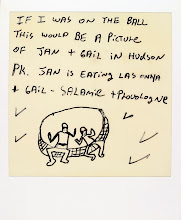 IF I WAS ON THE BALL
THIS WOULD BE A PICTURE
OF JAN + GAIL IN HUDSON
PK. JAN IS EATING LASANNA
+ GAIL - SALAMIE + PROVOLOGNE